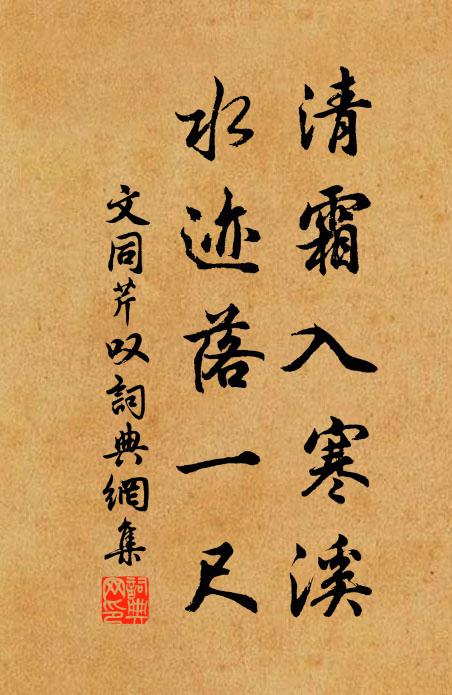 清霜入寒溪
水迹落一尺
文同芹叹詞典網集
詞典
网印